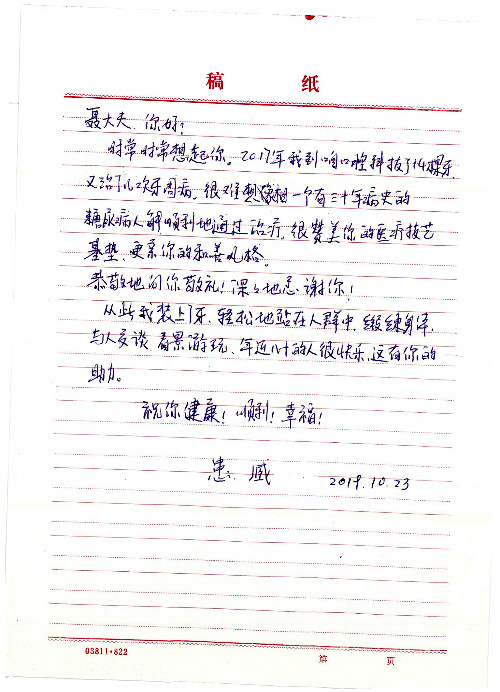 稿 纸
聂大夫、你好:
时常时常想起你。2017年我到咱口腔科拔了14颗牙
又治了几次牙周病。很难想像想一个有三十年病史的
糖尿病人能顺利地通过治疗,很赞美你的医疗技艺
基垫、更亲你的和善风格。
恭敬地向你敬礼!深々地忠谢你!
从此我装上了牙、轻松地站在人群中、练身体、
与人交谈、看景游玩、年近八十的人很快乐、这有你的
助力。
祝你健康!顺利!幸福!
患: 戚 2019.10.23
03811·822
第 页